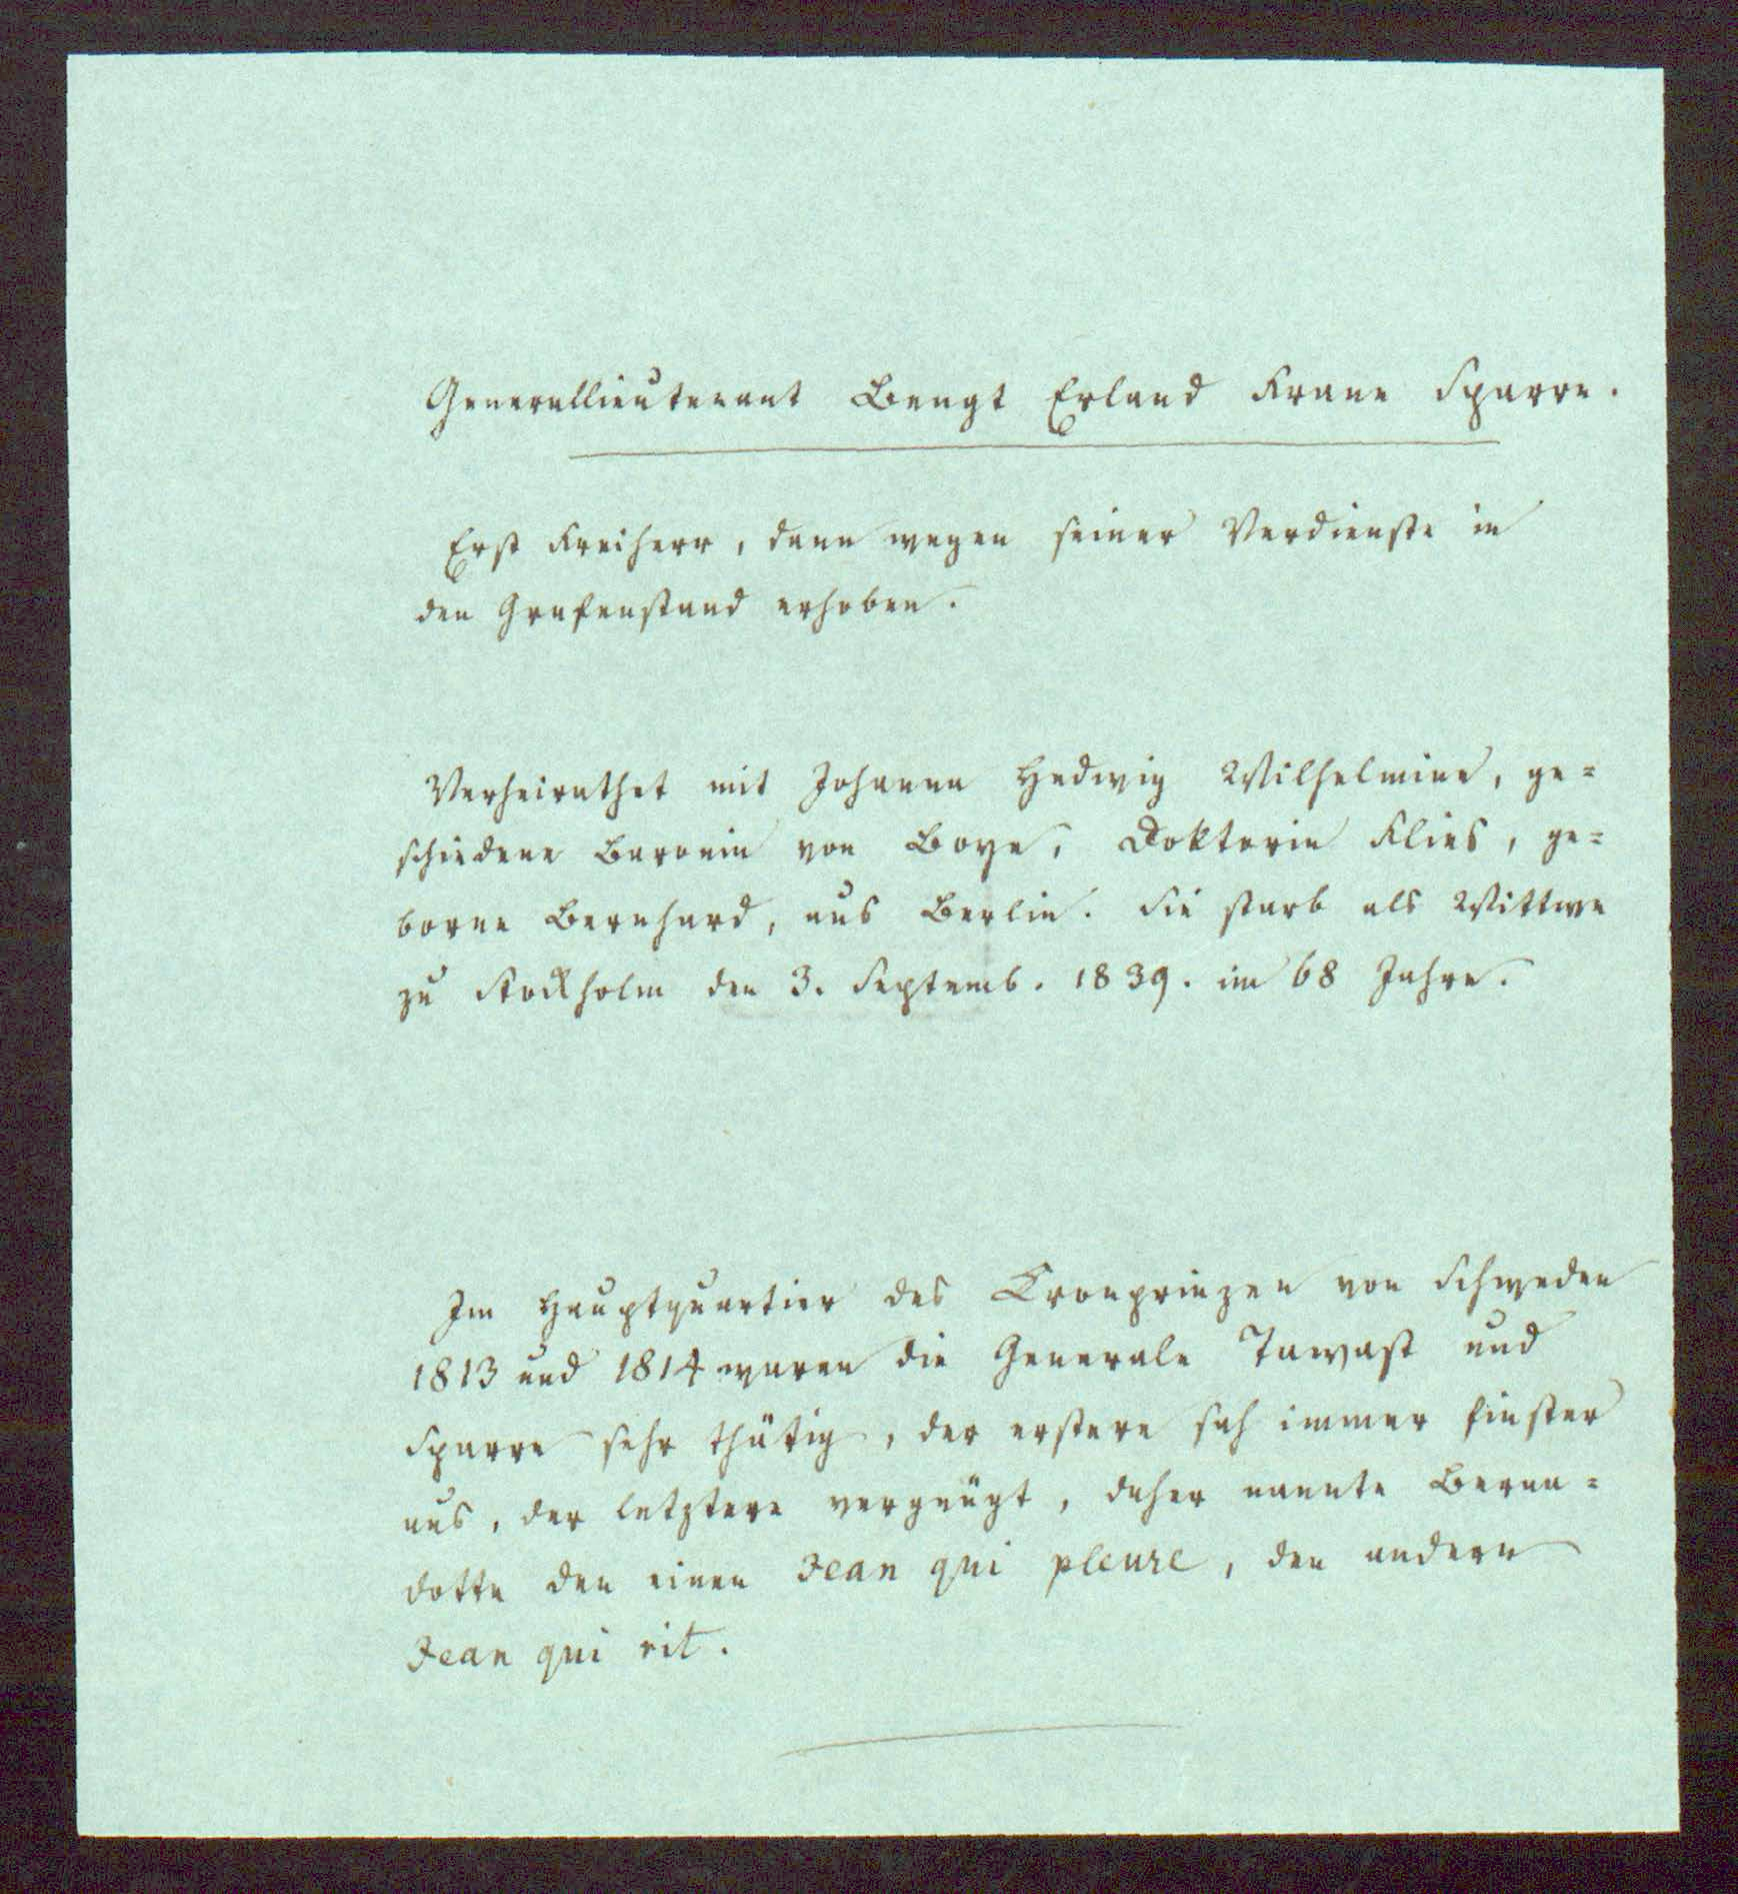 Generallieutenant Bengt Erland Frane Sparre.
Erst Freiherr, dann wegen seiner Verdienste in
den Grafenstand erhoben.
Verheirathet mit Johanna Hedwig Wilhelmine, ge=
schiedene Baronin von Boye, Doktorin Flies, ge=
borne Bernhard, aus Berlin. Sie starb als Wittwe
zu Stockholm den 3. Septemb. 1839. im 68 Jahre.
Im Hauptquartier des Cronprinzen von Schweden
1813 und 1814 waren die Generale Tawast und
Sparre sehr thätig, der erstere sah immer finster
aus, der letztere vergnügt, daher nannte Berna=
dotte den einen Jean qui pleure, den andern
Jean qui rit.